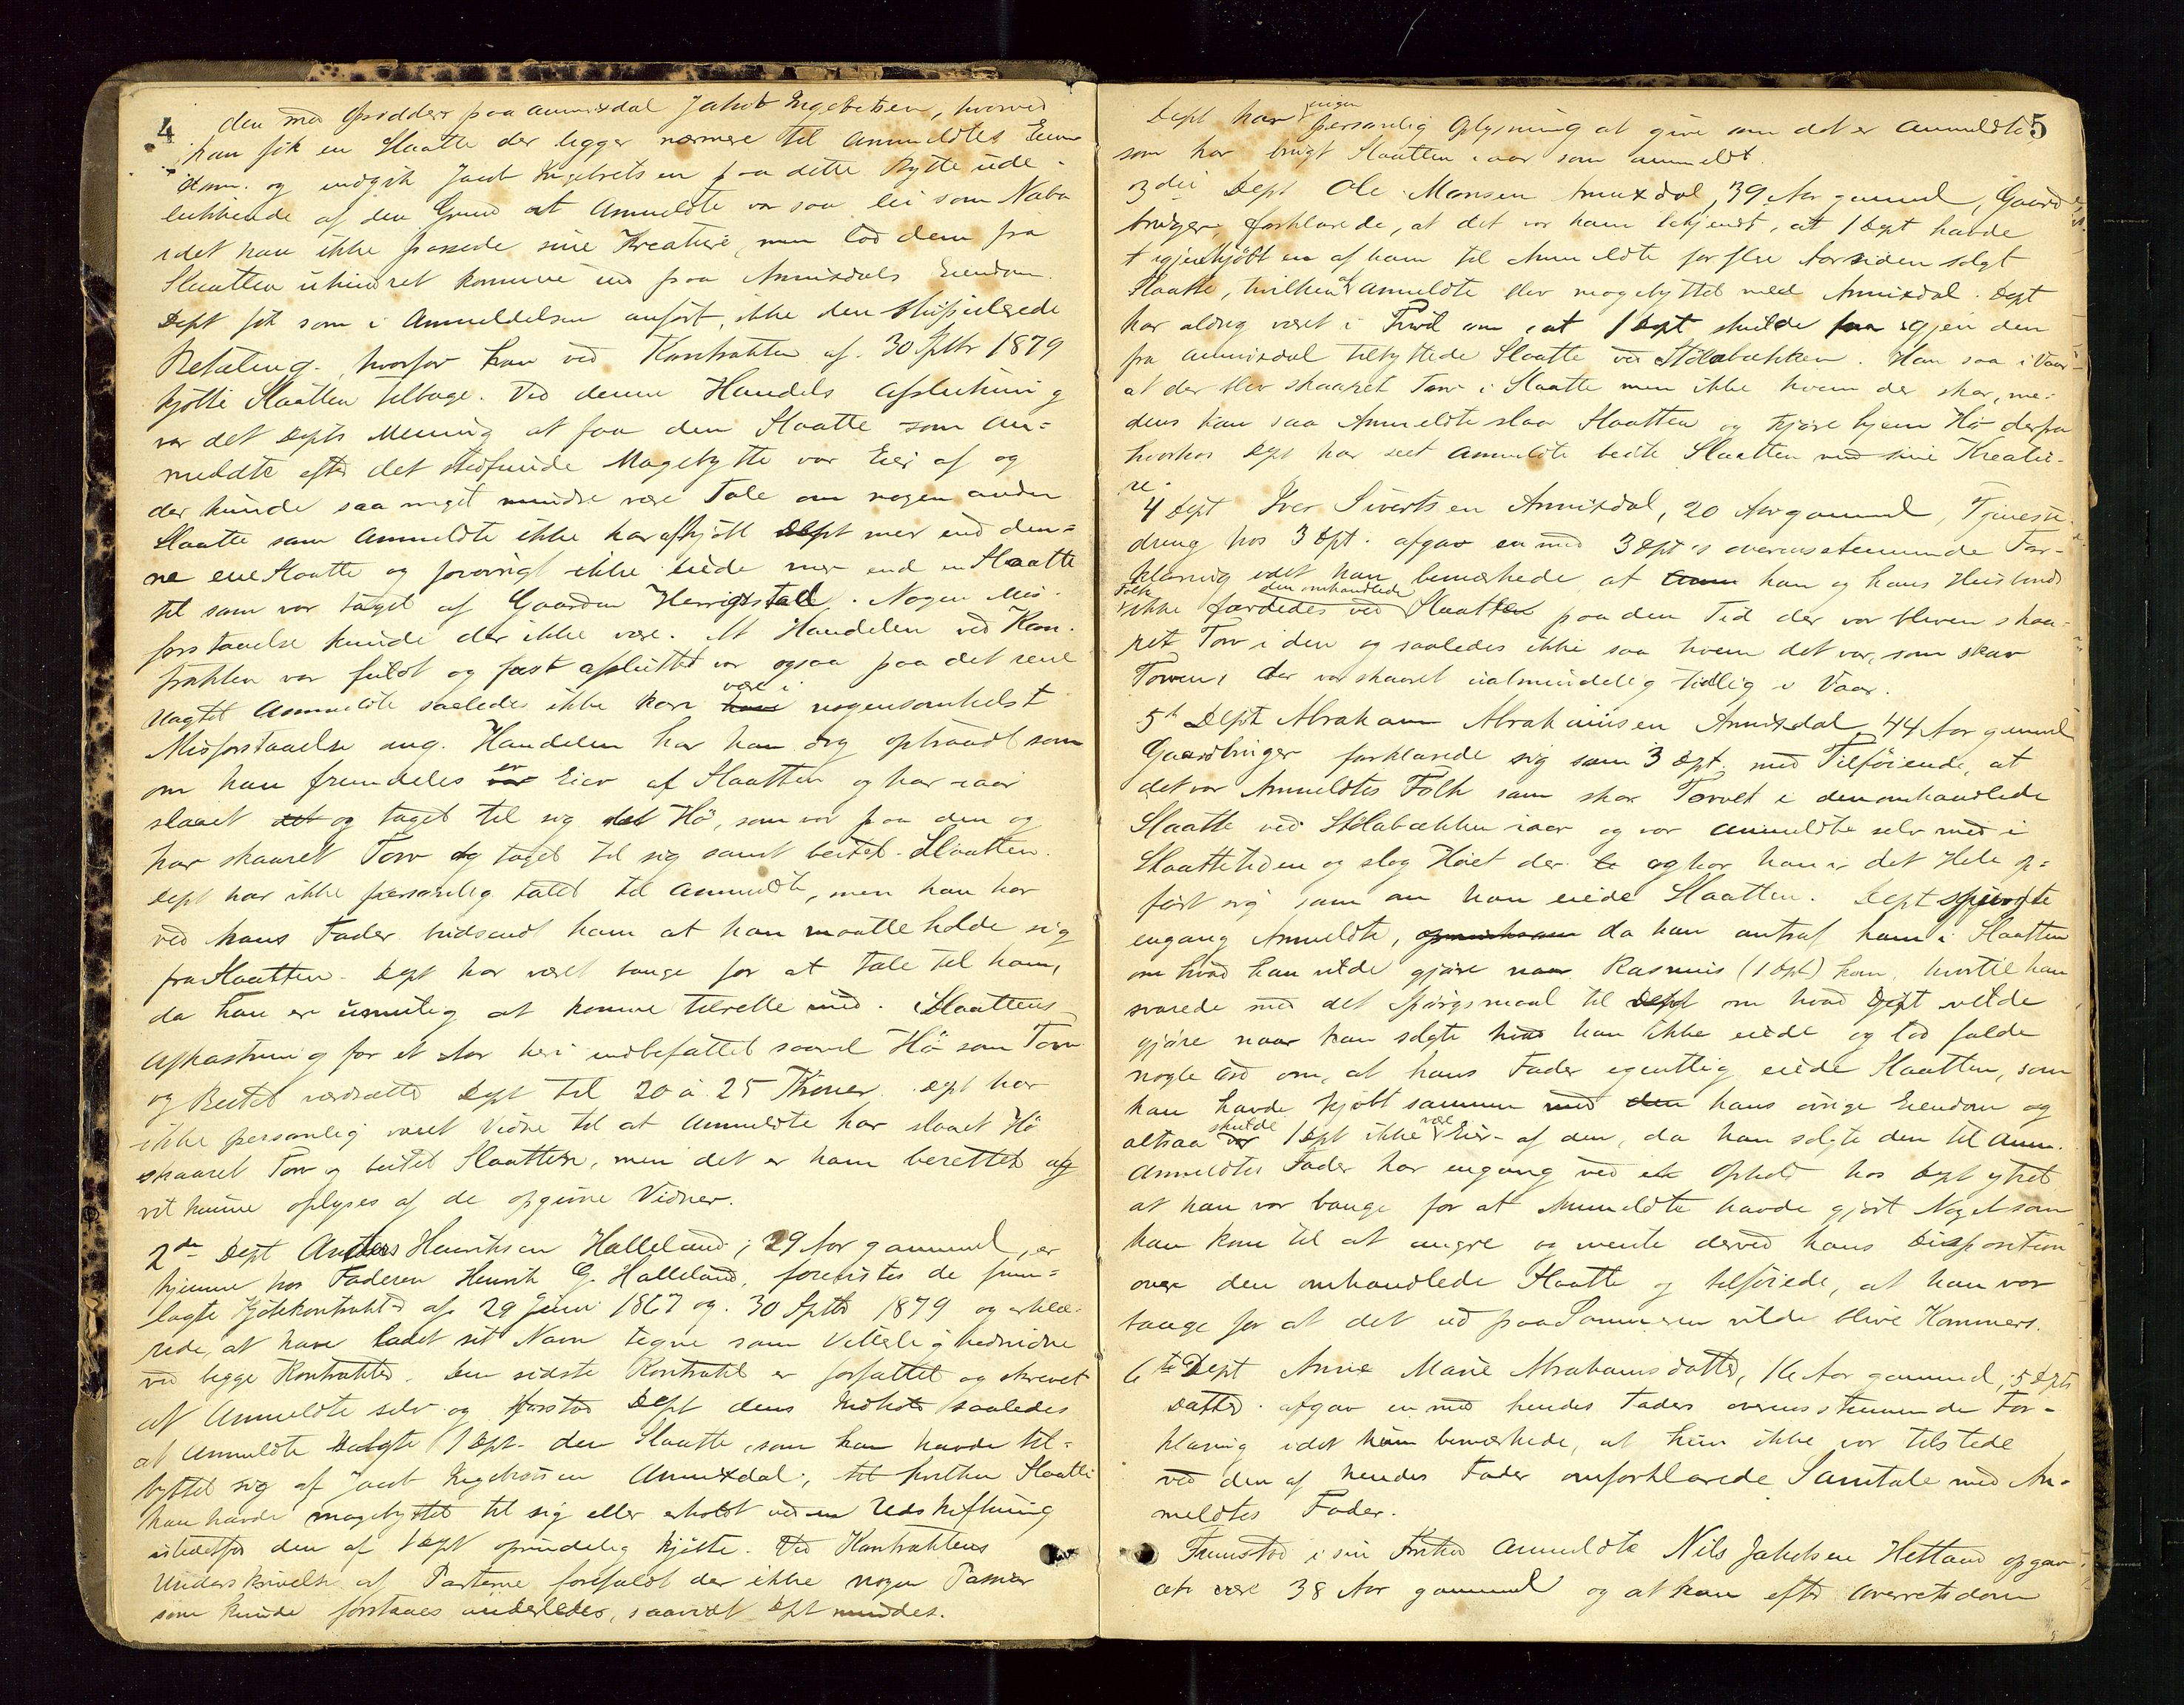 4
den med Opsidder paa Annixdal Jakob Ingebretsen, hvorved
han fik en Slaatte der ligger nærmere til Anmeldtes Eien-
dom. og indgik Jacob Ingebretsen paa dette Bytte ude-
lukkende af den Grund at Anmeldte var saa lei som Nabo
idet han ikke passede sine Kreature, men lod dem fra
Slaatten uhindret komme ind paa Annixdals Eiendom.
Dept fik som i Anmeldelsen anført, ikke den stipulerede
Betaling, hvorfor han ved Kontrakten af 30 Sptbr 1879
kjøbte Slaatten tilbage. Ved denne Handels Afslutning
var det Depts Mening at faa den Slaatte som An-
meldte efter det stedfundne Magebytte var Eier af og
der kunde saa meget mindre være Tale om nogen anden
Slaatte som Anmeldte ikke har afkjøbt Dept mer end den-
ne ene Slaatte og forøvrigt ikke eiede mer end en Slaatte
til som var taget af Gaarden Herrigstad. Nogen Mis-
forstaaelse kunde der ikke være. At Handelen ved Kon-
trakten var fuldt og fast afsluttet var ogsaa paa det rene
Uagtet Anmeldte saaledes ikke kan være i nogensomhelst
Misforstaaelse ang. Handelen har han dog optraadt som
om han fremdeles er Eier af Slaatten og har iaar
slaaet og taget til sig det Hø, som var paa den og
har skaaret Torv og taget til sig samt beitet Slaatten.
Dept har ikke personlig talt til Anmeldte, men han har
ved hans Fader budsendt ham at han maatte holde sig
fra Slaatten. Dept har været bange for at tale til ham,
da han er umulig at komme tilrette med. Slaattens
Afkastning for et Aar heri indbefattet saavel Hø som Torv
og Beitet værdsatte Dept til 20 à 25 Kroner. Dept har
ikke personlig været Vidne til at Anmeldte har slaaet Hø
skaaret Torv og beitet Slaatten, men det er ham berettet og
vil kunne oplyses af de opgivne Vidner.
2de Dept Anders Henriksen Halleland, 29 Aar gammel, er
hjemme hos Faderen Henrik G. Halleland, forevistes de frem-
lagte Kjøbekontrakter af 29 Juni 1867 og 30 Sptbr 1879 og erklæ-
rede, at have ladet sit Navn tegne som Vitterlighedsvidne
ved begge Kontrakter. Den sidste Kontrakt er forfattet og skrevet
af Anmeldte selv og forstod Dept dens Indhold saaledes
at Anmeldte solgte 1 Dept den Slaatte, som han havde til-
byttet sig af Jacob Ingebretsen Annixdal, hvilken Slaatte
han havde magebyttet til sig eller erholdt ved en Udskiftning
istedetfor den af 1 Dept oprindelig kjøbte. Ved Kontraktens
Underskrivelse af Parterne forefaldt der ikke nogen Passiar
som kunde forstaaes anderledes, saavidt Dept mindes.
5
Dept har ingen personlig Oplysning at give om det er Anmeldte
som har brugt Slaatten iaar som anmeldt.
3die Dept Ole Monsen Annixdal, 39 Aar gammel, Gaard-
bruger, forklarede, at det var ham bekjendt, at 1 Dept havde
igjenkjøbt en af ham til Anmeldte for flere Aar siden solgt
Slaatte, hvilken af Anmeldte blev magebyttet med Annixdal. Dept
har aldrig været i Tvivl om, at 1 Dept skulde faa igjen den
fra Annixdal tilbyttede Slaatte ved Stølabækken. Han saa i Vaar
at der blev skaaret Torv i Slaatte men ikke hvem der skar, me-
dens han saa Anmeldte slaa Slaatten og kjøre hjem Hø derfra
hvorhos Dept har seet Anmeldte beite Slaatten med sine Kreatu-
re.
4 Dept Iver Sivertsen Annixdal, 20 Aar gammel, Tjeneste-
dreng hos 3 Dpt. afgav en med 3 Dpt's overensstemmende For-
klaring idet han bemærkede at han og hans Husbonds
Folk ikke færdedes ved den omhandlede Slaatte paa den Tid der var bleven skaa-
ret Torv i den og saaledes ikke saa hvem det var, som skar
Torven, der var skaaret ualmindelig tidlig i Vaar.
5te Dept Abraham Abrahamsen Annixdal, 44 Aar gammel
Gaardbruger forklarede sig som 3 Dpt. med Tilføiende, at
det var Anmeldtes Folk som skar Torven i den omhandlede
Slaatte ved Stølabækken iaar og var Anmeldte selv med i
Slaattetiden og slog Høiet der og har han i det Hele op-
ført sig som om han eiede Slaatten. Dept spurgte
engang Anmeldte, da han antraf ham i Slaatten
om hvad han vilde gjøre naar Rasmus (1 Dpt) kom, hvortil han
svarede med det Spørgsmaal til Dept om hvad Dept vilde
gjøre naar han solgte hvad han ikke eiede og lod falde
nogle Ord om, at hans Fader egentlig eiede Slaatten, som
han havde kjøbt sammen med hans øvrige Eiendom og
altsaa skulde 1 Dept ikke være Eier af den, da han solgte den til Anm.
Anmeldtes Fader har engang ved et Ophold hos Dept ytret
at han var bange for at Anmeldte havde gjort Noget som
han kom til at angre og mente derved hans Disposition
over den omhandlede Slaatte og tilføiede, at han var
bange for at det ud paa Sommeren vilde blive Kommers.
6te Dept Anne Marie Abrahamsdatter, 16 Aar gammel, 5 Depts
Datter. afgav en med hendes Faders overensstemmende For-
klaring idet hun bemærkede, at hun ikke var tilstede
ved den af hendes Fader omforklarede Samtale med An-
meldtes Fader.
Fremstod i sin Frihed Anmeldte Nils Jakobsen Hetland opgav
at være 38 Aar gammel og at han efter Overretsdom